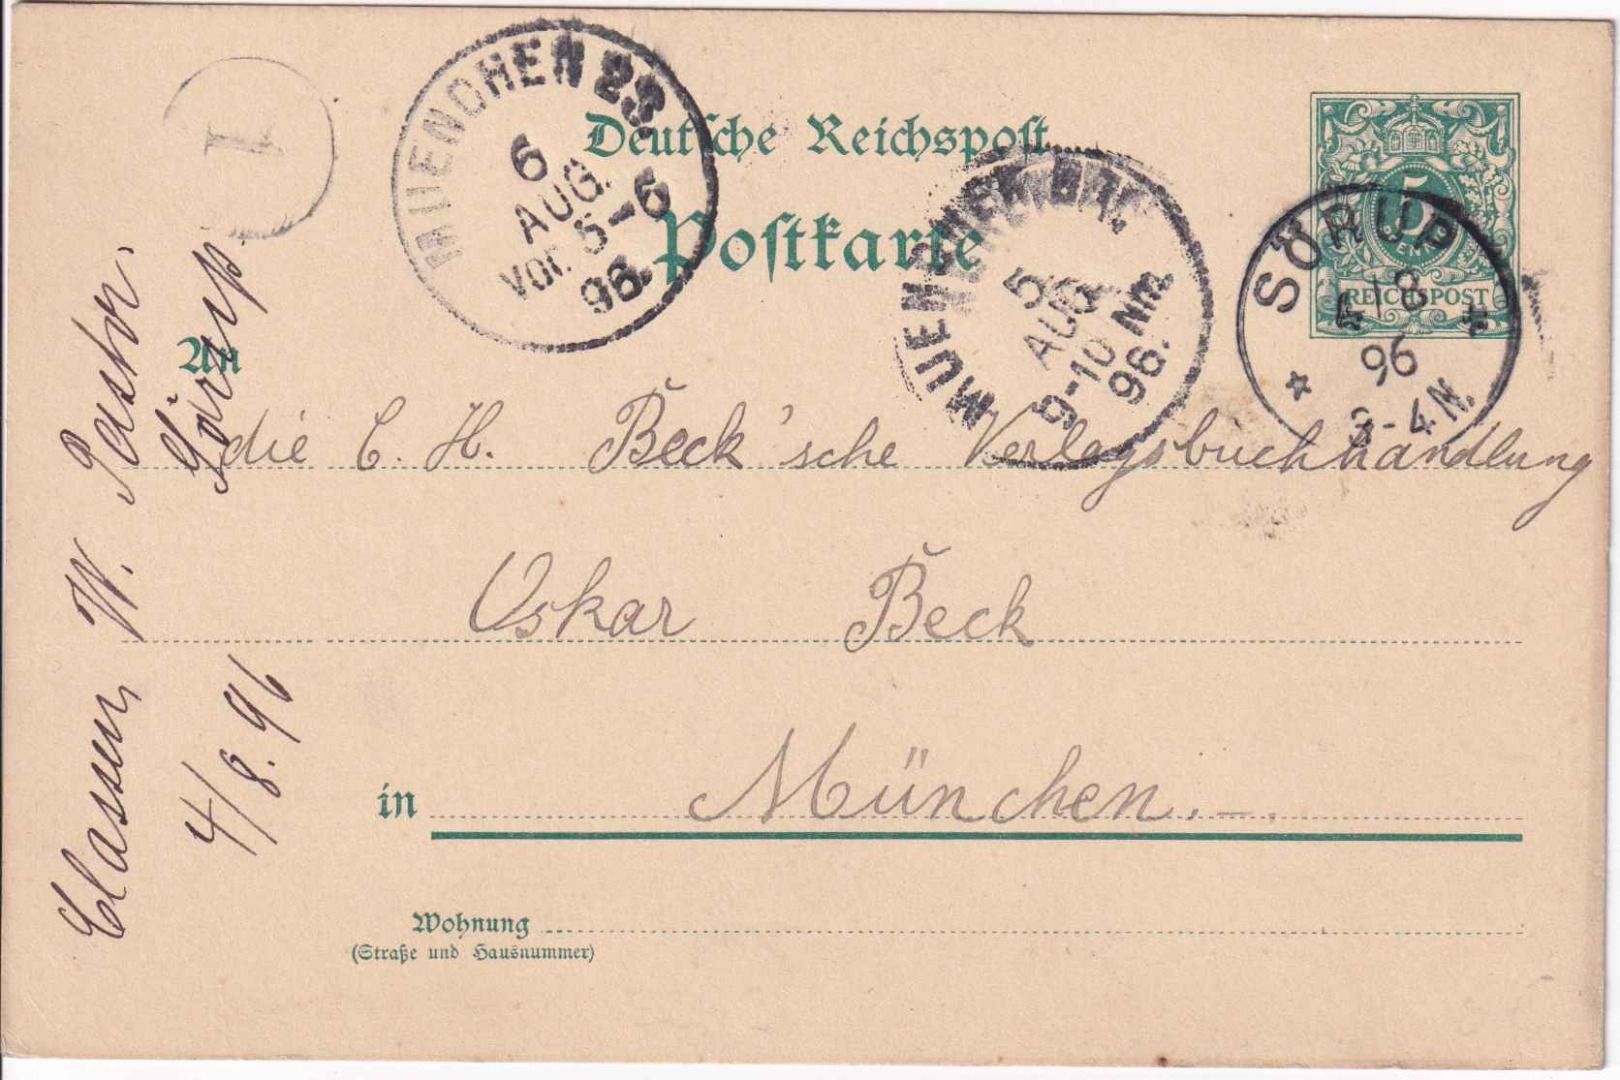 I
MUENCHEN 23.
6
AUG.
Vor. 5-6
96.
Deutsche Reichspost
Postkarte
MUENCHEN
5
AUG
9-10 Nm.
96.
5
REICHSPOST
SÖRUP
4/8
96
3-4 N.
An
die C. H. Beck'sche Verlagsbuchhandlung
Oskar Beck
in München.-.
Wohnung
(Straße und Hausnummer)
Classen, W. Pastor.
Sörup.
4/8.96